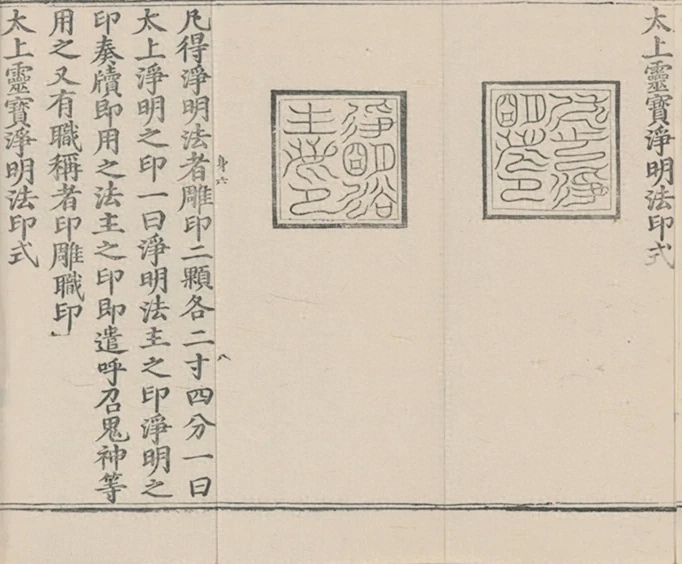 太上靈寶淨明法印式
太上淨明之印
淨明法主之印
凡得淨明法者雕印二顆各二寸四分一曰
太上淨明之印一曰淨明法主之印淨明之
印奏牘即用之法主之印即遣呼召鬼神等
用之又有職稱者印雕職印
太上靈寶淨明法印式
身六
八